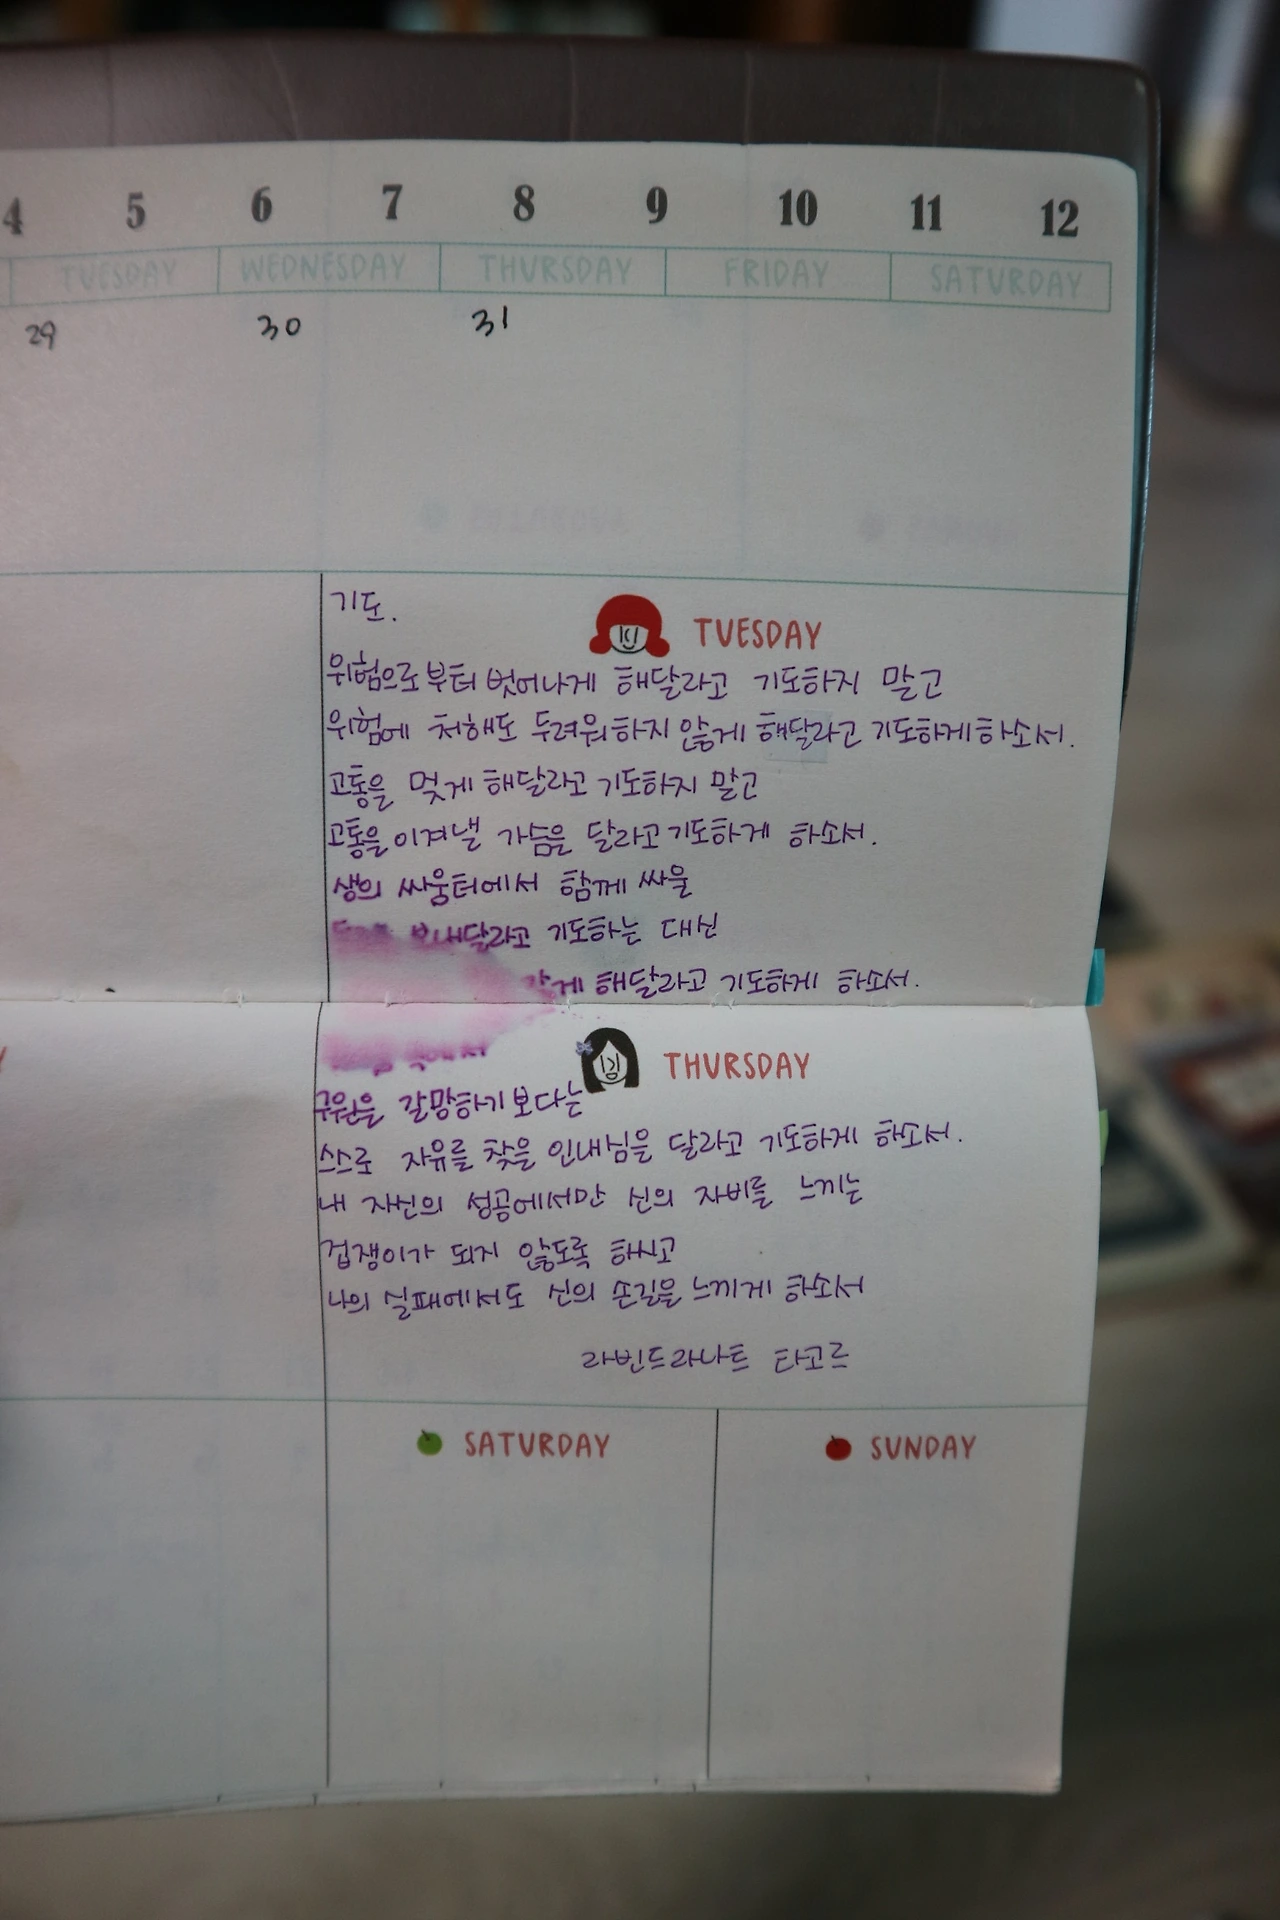 4 5 6 7 8 9 10 11 12
TUESDAY WEDNESDAY THURSDAY FRIDAY SATURDAY
29 30 31
기도.
TUESDAY
위험으로부터 벗어나게 해달라고 기도하지 말고
위험에 처해도 두려워하지 않게 해달라고 기도하게 하소서.
고통을 멎게 해달라고 기도하지 말고
고통을 이겨낼 가슴을 달라고 기도하게 하소서.
생의 싸움터에서 함께 싸울
보내달라고 기도하는 대신
갖게 해달라고 기도하게 하소서.
THURSDAY
구원을 갈망하기보다는
스스로 자유를 찾을 인내심을 달라고 기도하게 하소서.
내 자신의 성공에서만 신의 자비를 느끼는
겁쟁이가 되지 않도록 하시고
나의 실패에서도 신의 손길을 느끼게 하소서
라빈드라나트 타고르
SATURDAY SUNDAY